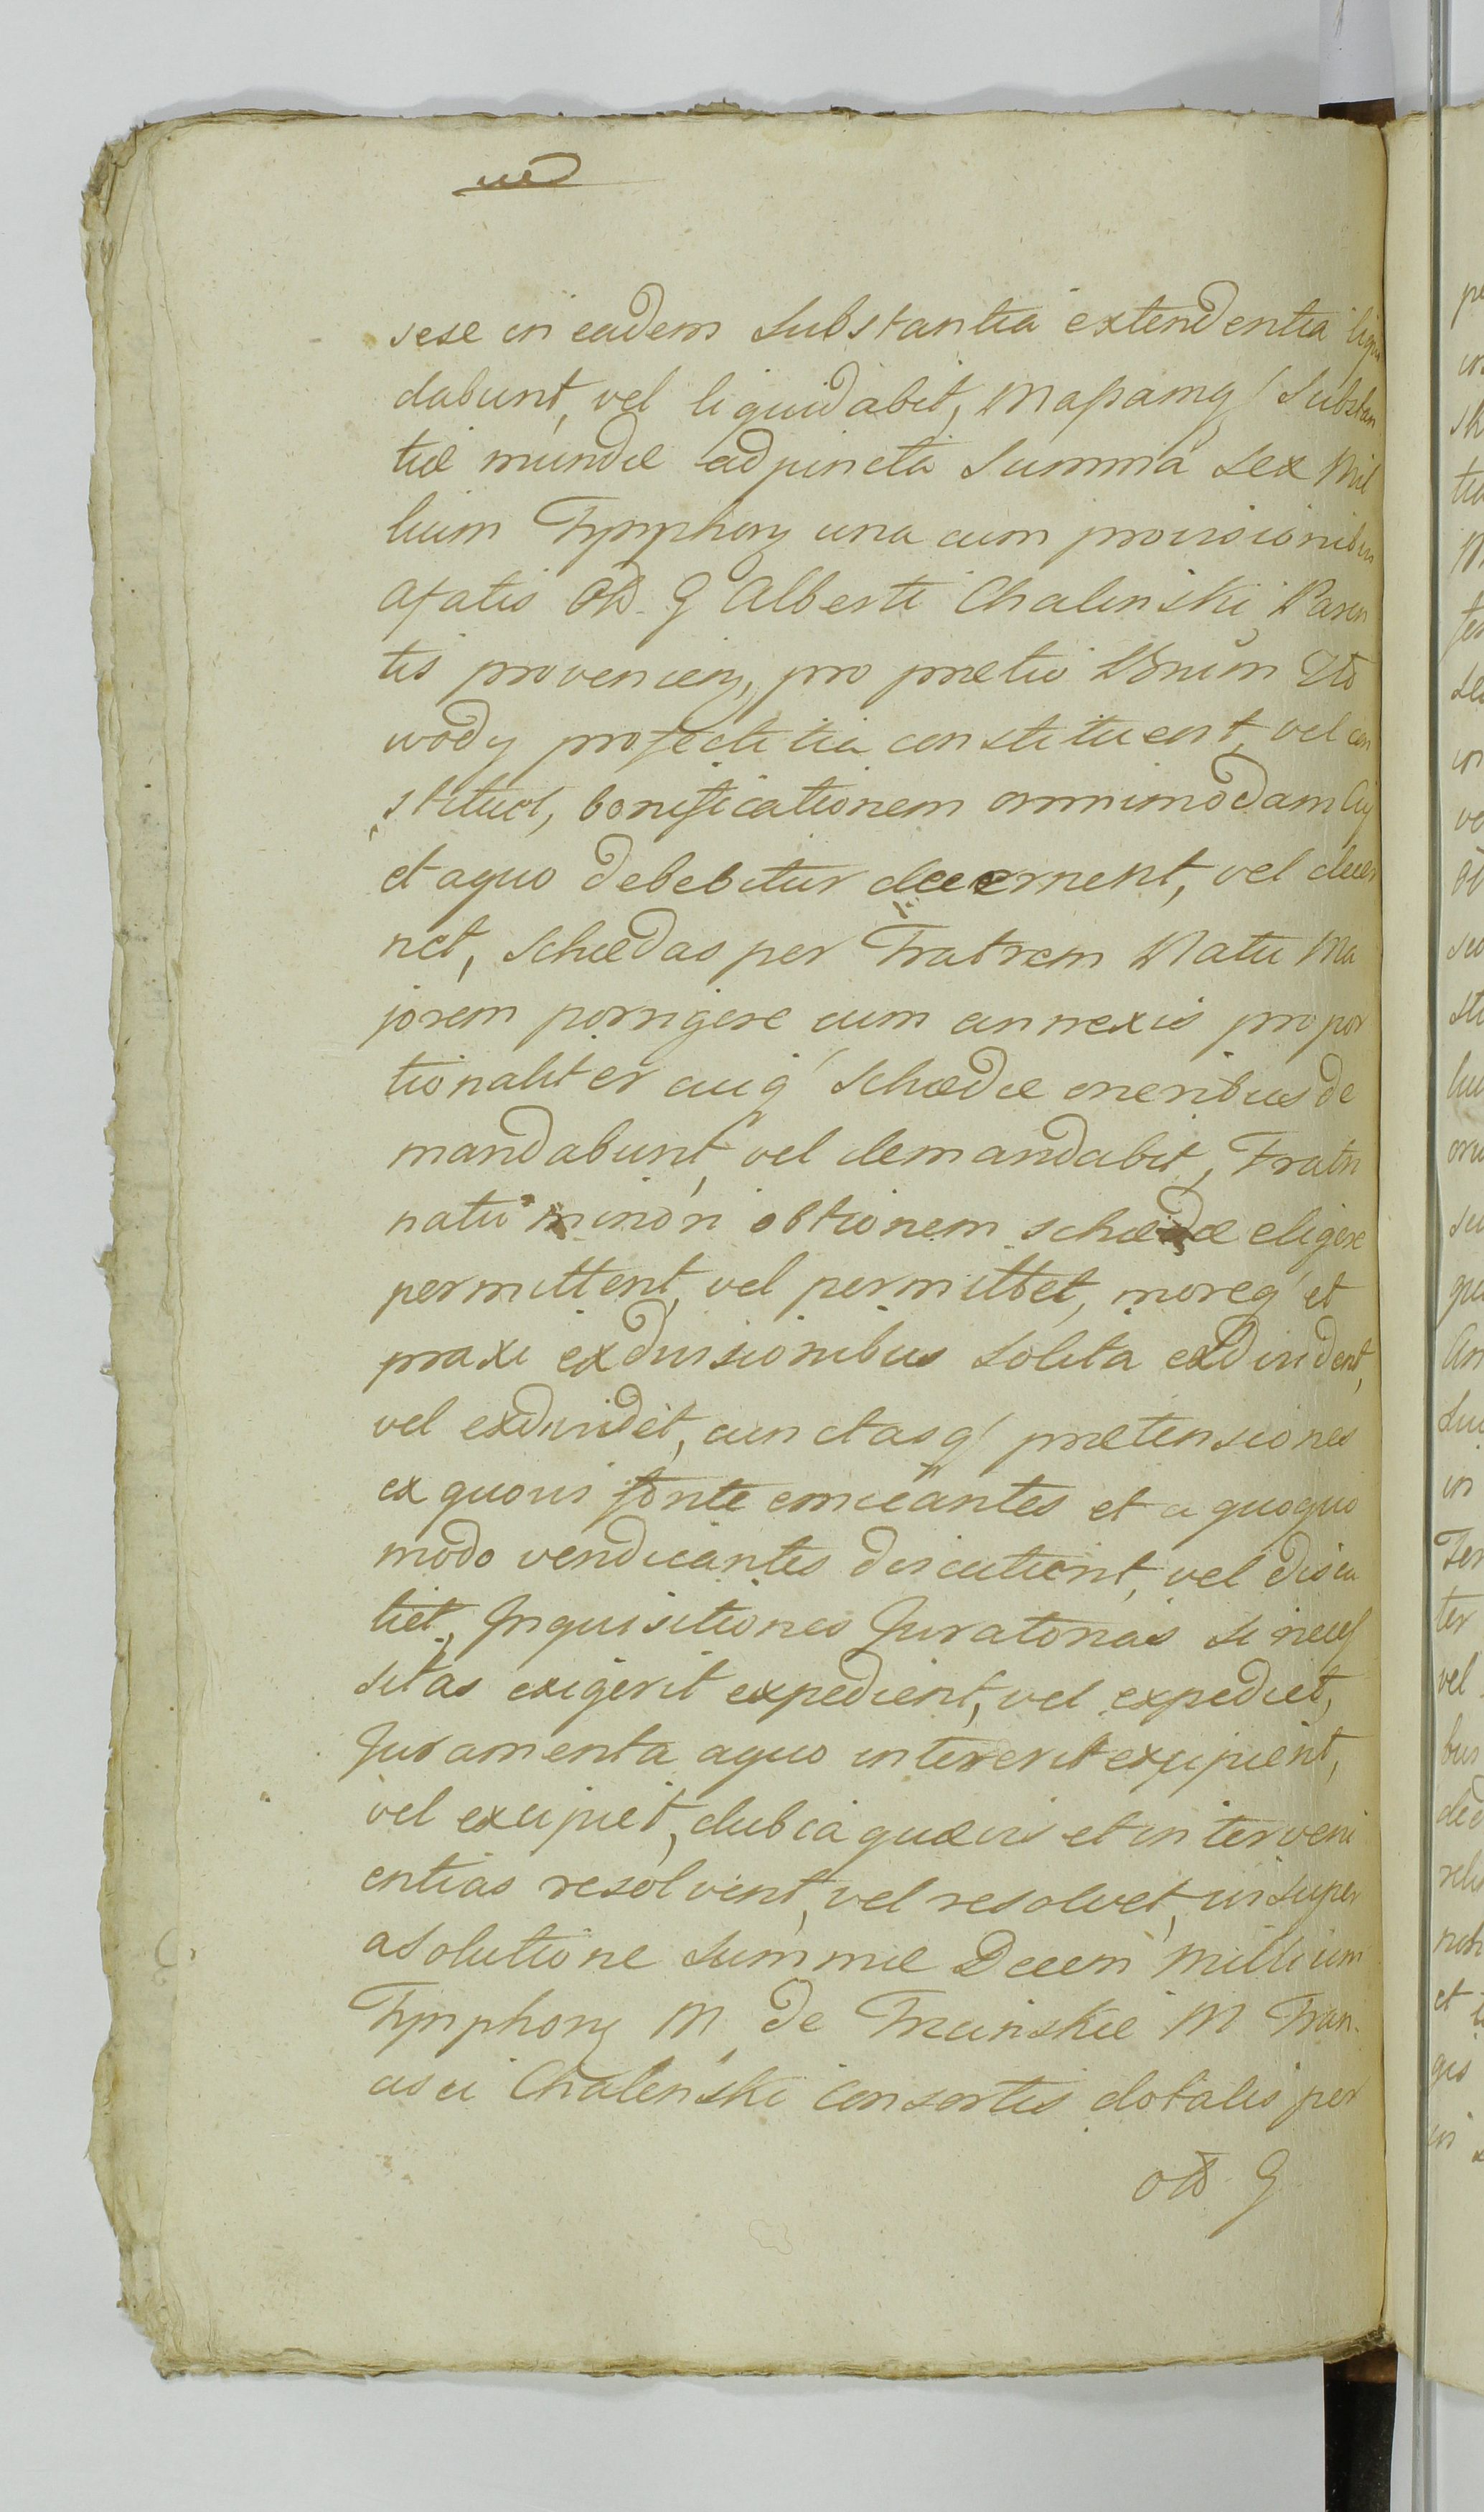 sese in eadem Substantia extendentia liqui
dabunt, vel liquidabit, Massamq Substan
tiæ mundæ adjuncta Summa Sex Mil
lium Tymphorum una cum provisionibus
afatis Olim G Alberti Chalinski Paren
tis provenien, pro pretio Bnum
wody profectitia constituent, vel con
stituet, bonificationem omnimodam Cuj
et aquo debebitur decernent, vel decer
net, Schædas per Fratrem Natu Ma
jorem porrigere cum annexis propor
tionaliter cuiq Schædæ oneribus de
mandabunt, vel demandabit, Fratri
natu minori obtionem schædæ eligere
permittent, vel permittet, moreq et
praxi exdivisionibus solita exdivident,
vel exdividet, cunctasq prætensiones
ex quovis fonte emicantes et a quoquo
modo vendicantes discutient, vel discu
tiet, Inquisitiones Juratorias si neces
sitas exigerit expedient, vel expediet,
Juramenta aquo intererit excipient,
vel excipiet, dubia quævis et interveni
entias resolvent, vel resolvet, insuper
asolutione Summæ Decem Millium
Tymphorum M. de Trzcinskie M Fran
cisci Chalenski Consortis dotalis per
Olim G